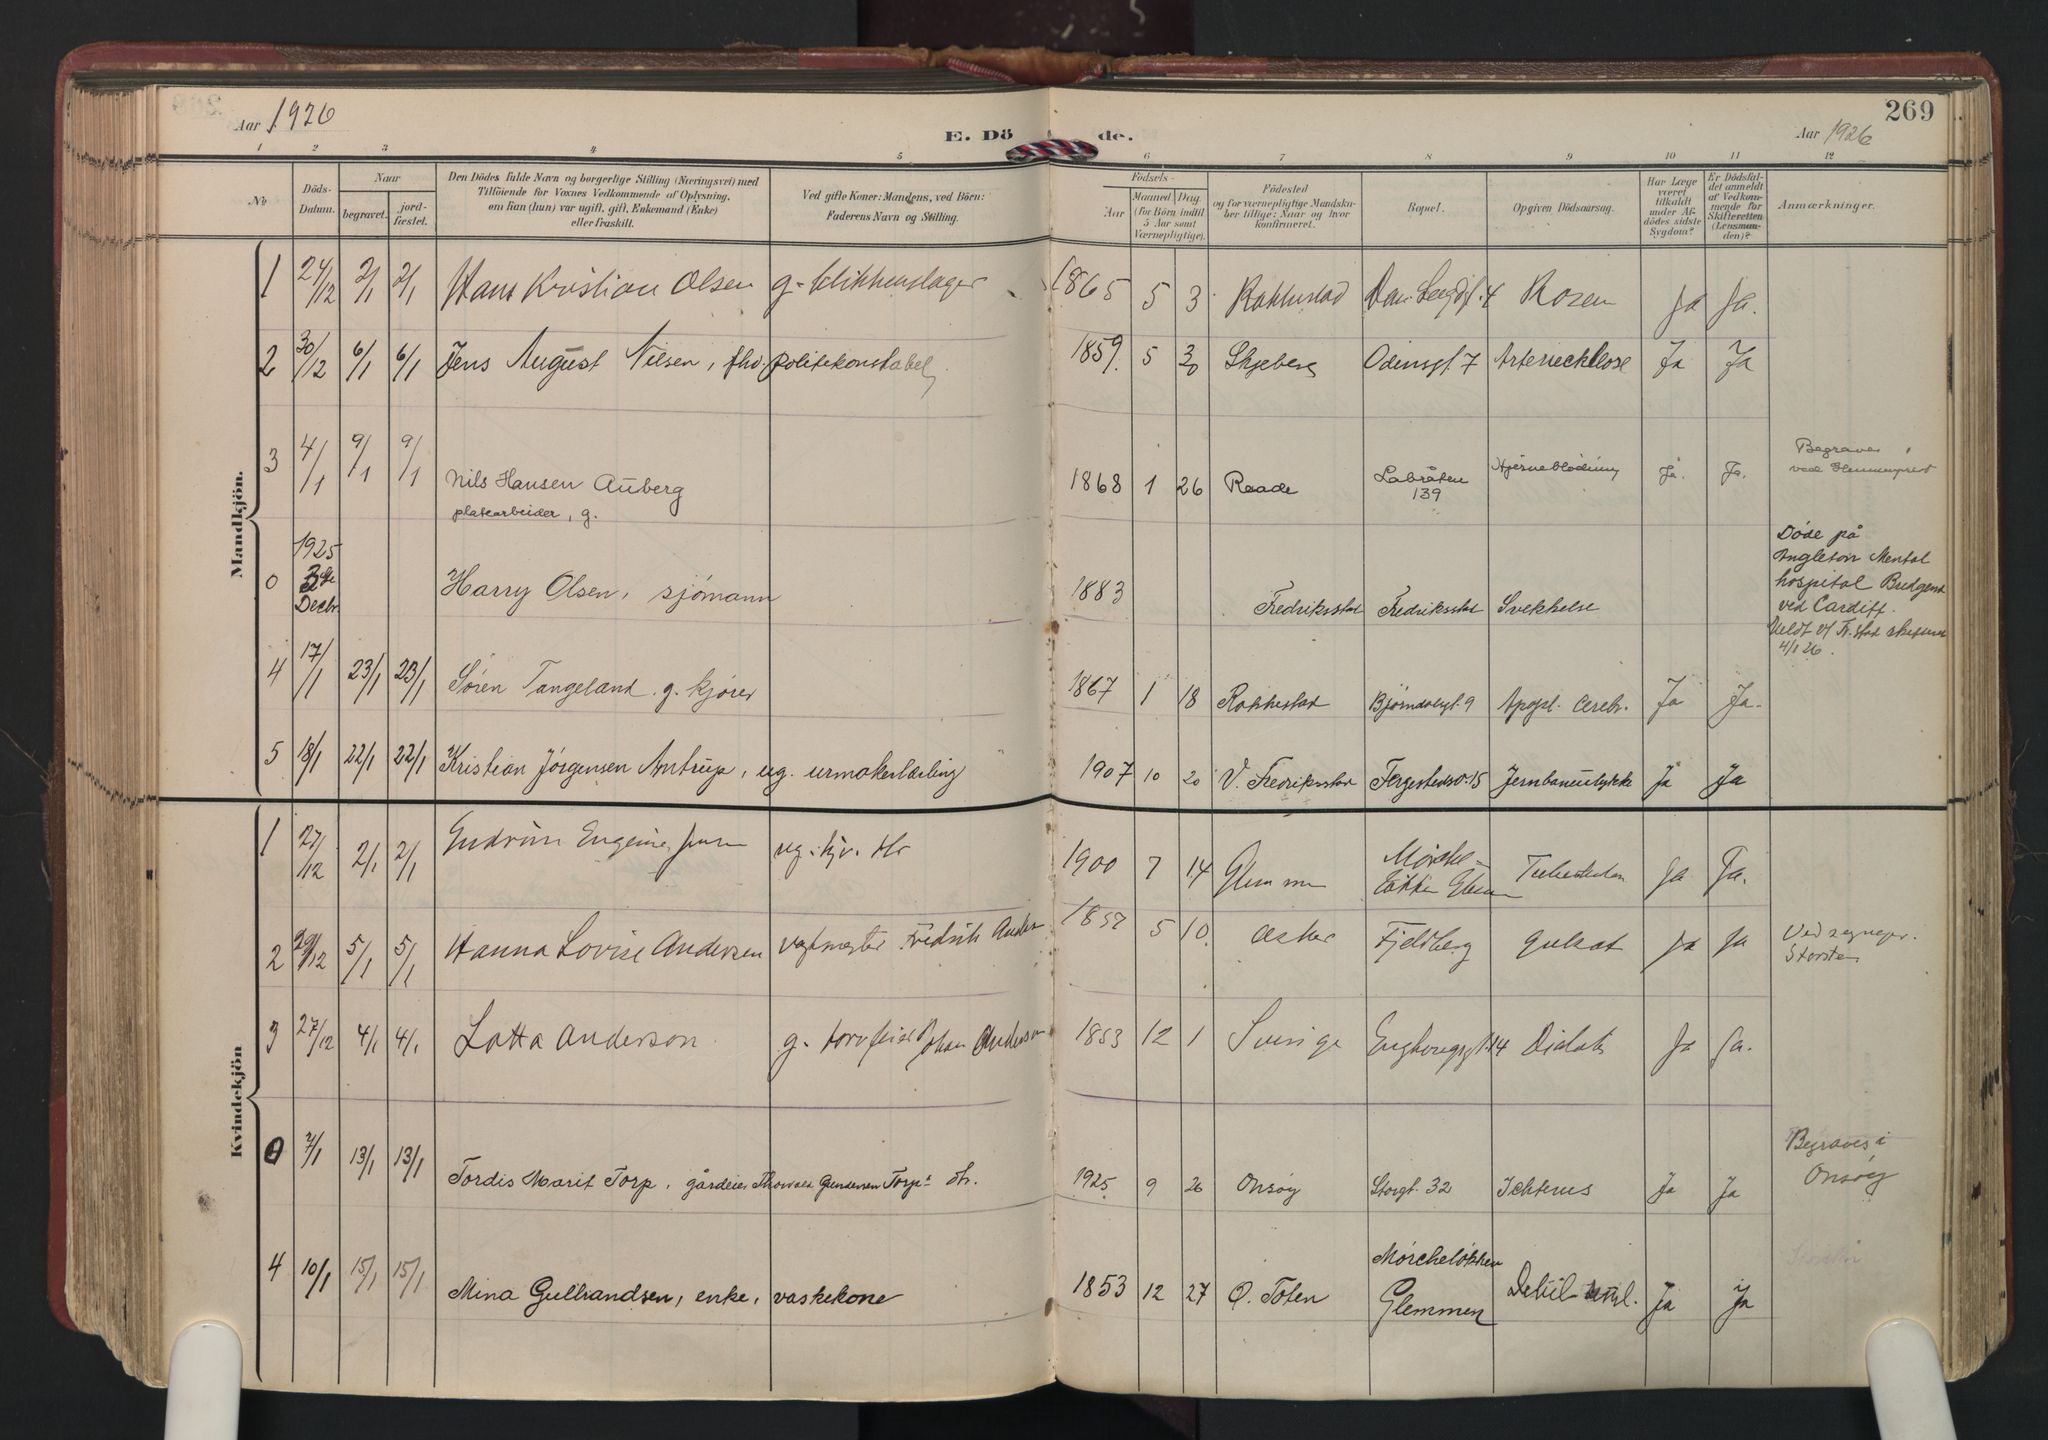 Aar 1926
E. Döde.
Aar 1926
269
1 2 3 4 5 6 7 8 9 10 11 12
No
Döds-Datum.
Naar
begravet.
jordfæstet.
Den Dödes fulde Navn og borgerlige Stilling (Næringsvei) med
Tilföiende for Voxnes Vedkommende af Oplysning,
om han (hun) var ugift, gift, Enkemand (Enke)
eller fraskilt.
Ved gifte Koner: Mandens, ved Börn:
Faderens Navn og Stilling.
Födsels-
Aar
Maaned Dag
(for Börn indtil
5 Aar samt
Værnepligtige).
Födested
og for værnepligtige Mandska-
ber tillige: Naar og hvor
konfirmeret.
Bopæl.
Opgiven Dödsaarsag.
Har Læge
været
tilkaldt
under Af-
dödes sidste
Sygdom?
Er Dödsfal-
det anmeldt
af Vedkom-
mende for
Skifteretten
(Lensman-
den)?
Anmærkninger.
Mandkjön.
1 24/12 2/1 2/1 Hans Kristian Olsen g. blikkenslager 1865 5 3 Rakkestad 4 Rosen Ja Ja.
2 30/12 6/1 6/1 Jens August Nilsen, fhv. politikonstabel 1859. 5 30 Skjeberg Odinsgt 7 Ja Ja
3 4/1 9/1 9/1 Nils Hansen Auberg
platearbeider, g.
1868 1 26 Raade Labråten
139
Hjerneblödning Ja. Ja.
Begraves
ved
0 1925
Decbr
Harry Olsen, sjömann 1883 Fredriksstad Fredriksstad Svekkelse
Döde på
Angleton Mental
hospital Bridgend
ved Cardiff.
4/1 26.
4 17/1 23/1 23/1 Sören Tangeland. g. kjörer 1867 1 18 Rakkestad Björndalsgt. 9 Apopl. cerebr. Ja Ja.
5 18/1 22/1 22/1 Kristian Jörgensen Antrup, ug. urmakerlærling 1907 10 20 V. Fredriksstad 15 Jernbaneulykke Ja Ja
Kvindekjön
1 27/12 2/1 2/1 Gudrun Eugenie ug. 1900 7 14 Glemmen Ja Ja.
2 29/12 5/1 5/1 Hanna Lovise Andersen Fredrik 1857 5 10. Asker Fjeldberg Gulsot Ja Ja
Ved sognepr.
3 27/12 4/1 4/1 Lotta Anderson g. Johan Anderson 1853 12 1 Sverige 14 Ja Ja.
0 7/1 13/1 13/1 Tordis Marit Torp, gårdeier Gundersen Torps dtr. 1925 9 26 Onsöy Storgt. 32 Ichterus Ja Ja
Begraves i
Onsöy
4 10/1 15/1 15/1 Mina Gulbrandsen, enke, vaskekone 1853 12 27 Ö. Toten Mörcheløkken
Glemmen
Ja Ja